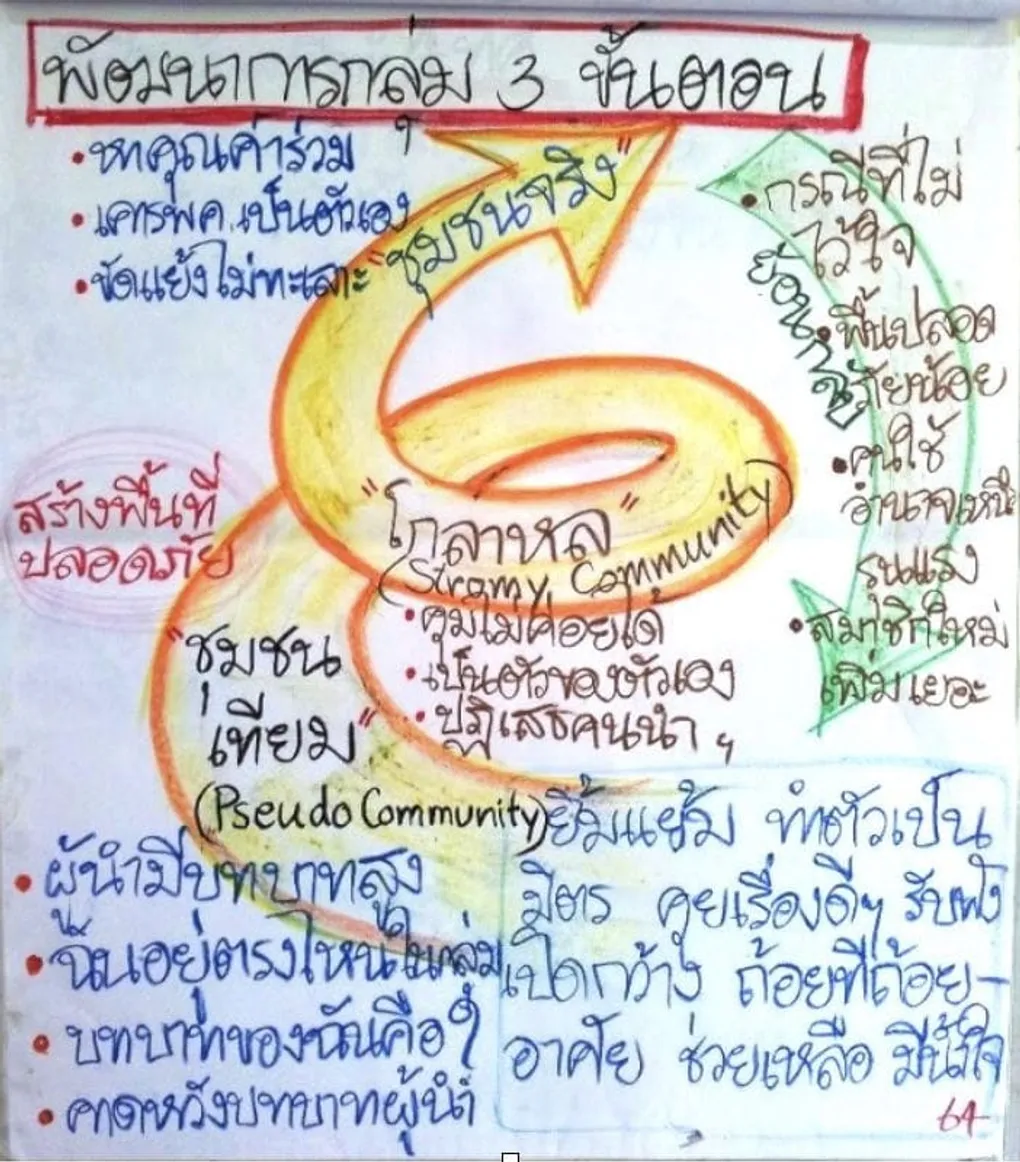 พัฒนาการกลุ่ม 3 ขั้นตอน
• หาคุณค่าร่วม ฯ
• เคารพค.เป็นตัวเอง
• ขัดแย้งไม่ทะเลาะ
"ชุมชนจริง"
• กรณีที่ไม่
ไว้ใจ
ย้อนกลับ
• พื้นปลอด
ภัยน้อย
• คนใช้
อำนาจเหนือ
รุนแรง
• สมาชิกใหม่
เพิ่มเยอะ
สร้างพื้นที่
ปลอดภัย
"โกลาหล"
(Stromy Community)
• คุมไม่ค่อยได้
• เป็นตัวของตัวเอง
• ปฏิเสธคนนำ ฯ
"ชุมชน
เทียม"
(Pseudo Community)
• ผู้นำมีบทบาทสูง
• ฉันอยู่ตรงไหนในกลุ่ม
• บทบาทของฉันคือ?
• คาดหวังบทบาทผู้นำ
ยิ้มแย้ม ทำตัวเป็น
มิตร คุยเรื่องดีๆ รับฟัง
เปิดกว้าง ถ้อยทีถ้อย-
อาศัย ช่วยเหลือ มีน้ำใจ
64